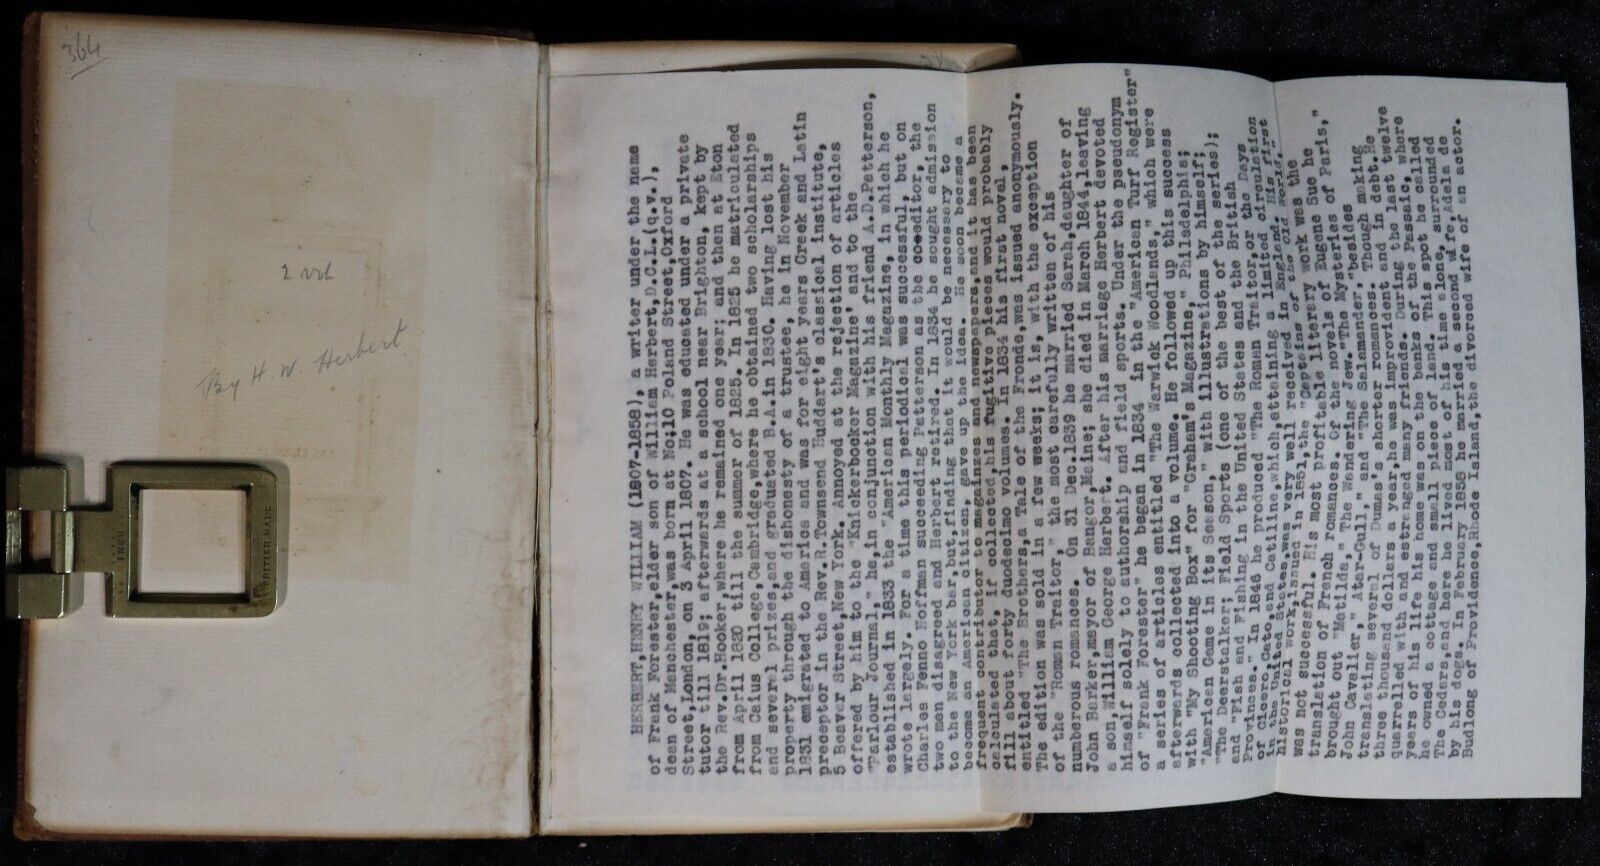 364
2 vols
By H. W. Herbert
INCH
BRITISH MADE
HERBERT,HENRY WILLIAM (1807-1858), a writer under the name
of Frank Forester,elder son of William Herbert,D.C.L.(q.v.),
dean of Manchester,was born at No;10 Poland Street,Oxford
Street,London, on 3 April 1807. He was educated under a private
tutor till 1819; afterwares at a school near Brighton, kept by
the Rev.Dr.Hooker,where he remained one year; and then at Eton
from April 1820 till the summer of 1825. In 1825 he matriculated
from Caius College,Cambridge,where he obained two scholarships
and several prizes,and graduated B.A.in 1830. Having lost his
property through the dishonesty of a trustee, he in November
1831 emigrated to America and was for eight years Greek and Latin
preceptor in the Rev.R.Townsend Huddart's classical institute,
5 Beaver Street,New York. Annoyed at the rejection of articles
offered by him to the "Knickerbocker Magazine' and to the
"Parlour Journal," he,in conjunction with his friend A.D.Patterson,
established in 1833 the "American Monthly Magazine, in which he
wrote largely. For a time this periodical was successful, but on
Charles Fenno Hoffman succeeding Patterson as the editor, the
two men dissagreed and Herbert retired. In 1834 he sought admission
to the New York bar,but,finding that it would be necessary to
become an American citizen, gave up the idea. He soon became a
frequent contributor to magainzes and newspapers,and it has been
calculated that, if collected,his fugitive pieces would probably
fill about forty duodecimo volumes. In 1834 his first novel,
entitled "The Brothers,a Tale of the Fronde,was issued anonymously.
The edition was sold in a few weeks; it is, with the exception
of the "Roman Traitor," the most carefully written of his
numberous romances. On 31 Dec.1839 he married Sarah,daughter of
John Barker,mayor of Bangor,Maine; she died in March 1844,leaving
a son,William George Herbert. After his marriage Herbert devoted
himself solely to authorship and field sports. Under the pseudonym
of "Frank Forester" he began in 1834 in the "American Turf Register"
a series of articles entitled "The Warwick Woodlands," which were
afterwards collected into a volume. He followed up this success
with "My Shooting Box" for "Graham's Magazine," Philadelphia;
"American Game in its Season," with illustrations by himself;
"The Deerstalker; Field Sports (one of the best of the series);
and "Fish and Fishing in the United States and the British
Provinces." In 1846 he produced "The Roman Traitor,or the Days
of Cicero,Cato,and Catiline,which,attaining a limited circulation
in the United States,was very well received in England. His first
historical work,issued in 1851,the "Captains of the Old World,"
was not successful. His most profitable literary work was the
translation of French romances. Of the novels of Eugene Sue he
brought out "Matilda," "The Wandering Jew,"The Mysteries of Paris,"
John Cavalier," Atar-Gull," and "The Salamander,"besides
translating several of Dumas's shorter romances. Though making
three thousand dollars a year,he was improvident and in debt.He
quarrelled with and estranged many friends. During the last twelve
years of his life his home was on the banks of the Passaic, where
he owned a cottage and small piece of land. This spot he called
The Cedars,and here he lived most of his time alone, surrounded
by his dogs. In February 1858 he married a second wife,Adela de
Budlong of Providence,Rhode Island,the divorced wife of an actor.